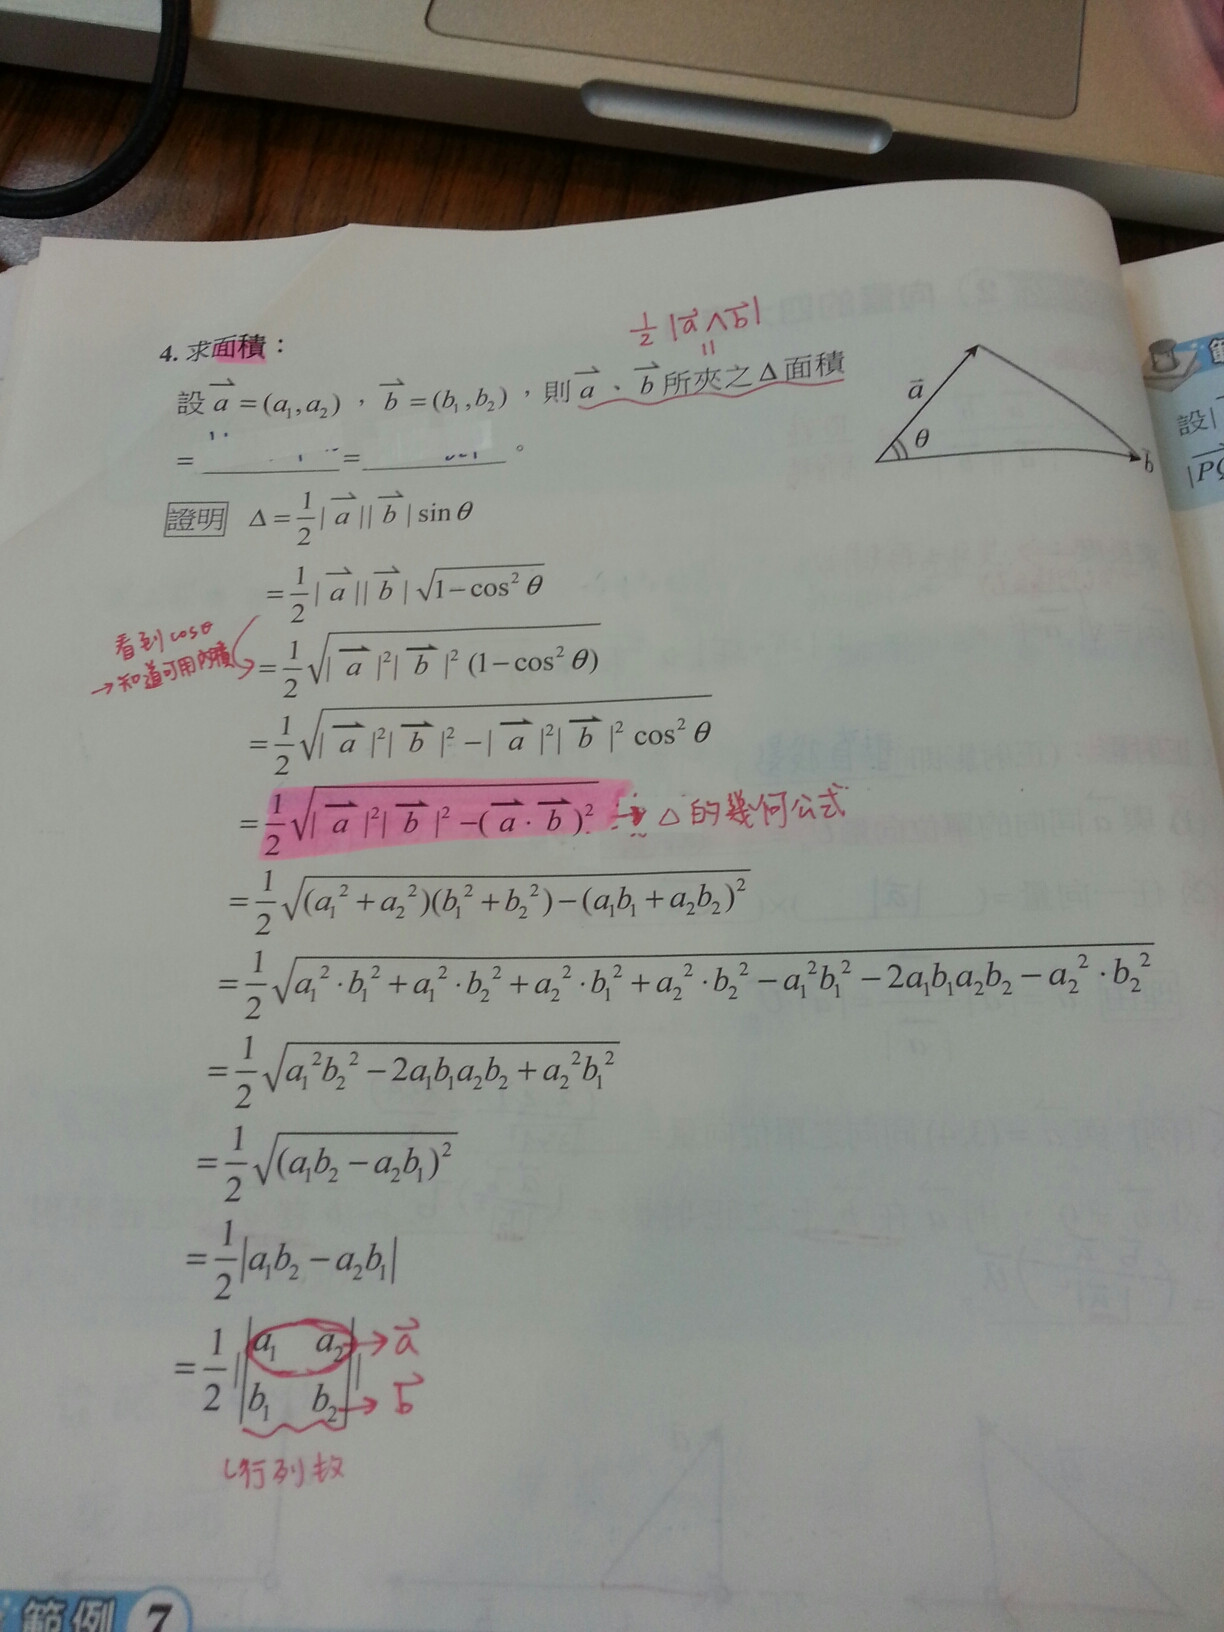 ½ |a⃗ ∧ b⃗|
=
4. 求面積：
設 a⃗ = (a₁, a₂)，b⃗ = (b₁, b₂)，則 a⃗、b⃗ 所夾之 Δ 面積
= ______ = ______。
a⃗
θ
b⃗
證明 Δ = ½ |a⃗||b⃗| sin θ
= ½ |a⃗||b⃗| √(1 − cos² θ)
看到 cosθ
→ 知道可用內積
= ½ √(|a⃗|²|b⃗|² (1 − cos² θ))
= ½ √(|a⃗|²|b⃗|² − |a⃗|²|b⃗|² cos² θ)
= ½ √(|a⃗|²|b⃗|² − (a⃗ · b⃗)²) → △ 的幾何公式
= ½ √((a₁² + a₂²)(b₁² + b₂²) − (a₁b₁ + a₂b₂)²)
= ½ √(a₁² · b₁² + a₁² · b₂² + a₂² · b₁² + a₂² · b₂² − a₁²b₁² − 2a₁b₁a₂b₂ − a₂² · b₂²)
= ½ √(a₁²b₂² − 2a₁b₁a₂b₂ + a₂²b₁²)
= ½ √((a₁b₂ − a₂b₁)²)
= ½ |a₁b₂ − a₂b₁|
= ½ || a₁ a₂ | → a⃗
| b₁ b₂ || → b⃗
行列式
範例 7
設|
|PQ